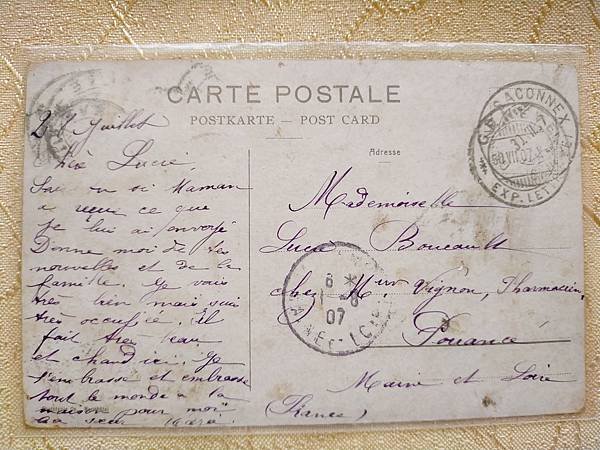 CARTE POSTALE
POSTKARTE — POST CARD
Adresse
Juillet
Lucie
si Maman
a reçu ce que
je lui ai envoyé
Donne moi de tes
nouvelles et de la
famille. Je vais
très bien mais suis
très occupée. Il
fait très beau
et chaud ici. Je
t'embrasse et embrasse
tout le monde à la
maison pour moi
ta sœur
Mademoiselle
Lucie Boucault
chez Mr Vignon, Pharmacien,
Pouancé
Maine et Loire
(France)
SACONNEX
EXP. LETT.
6 *
8
07